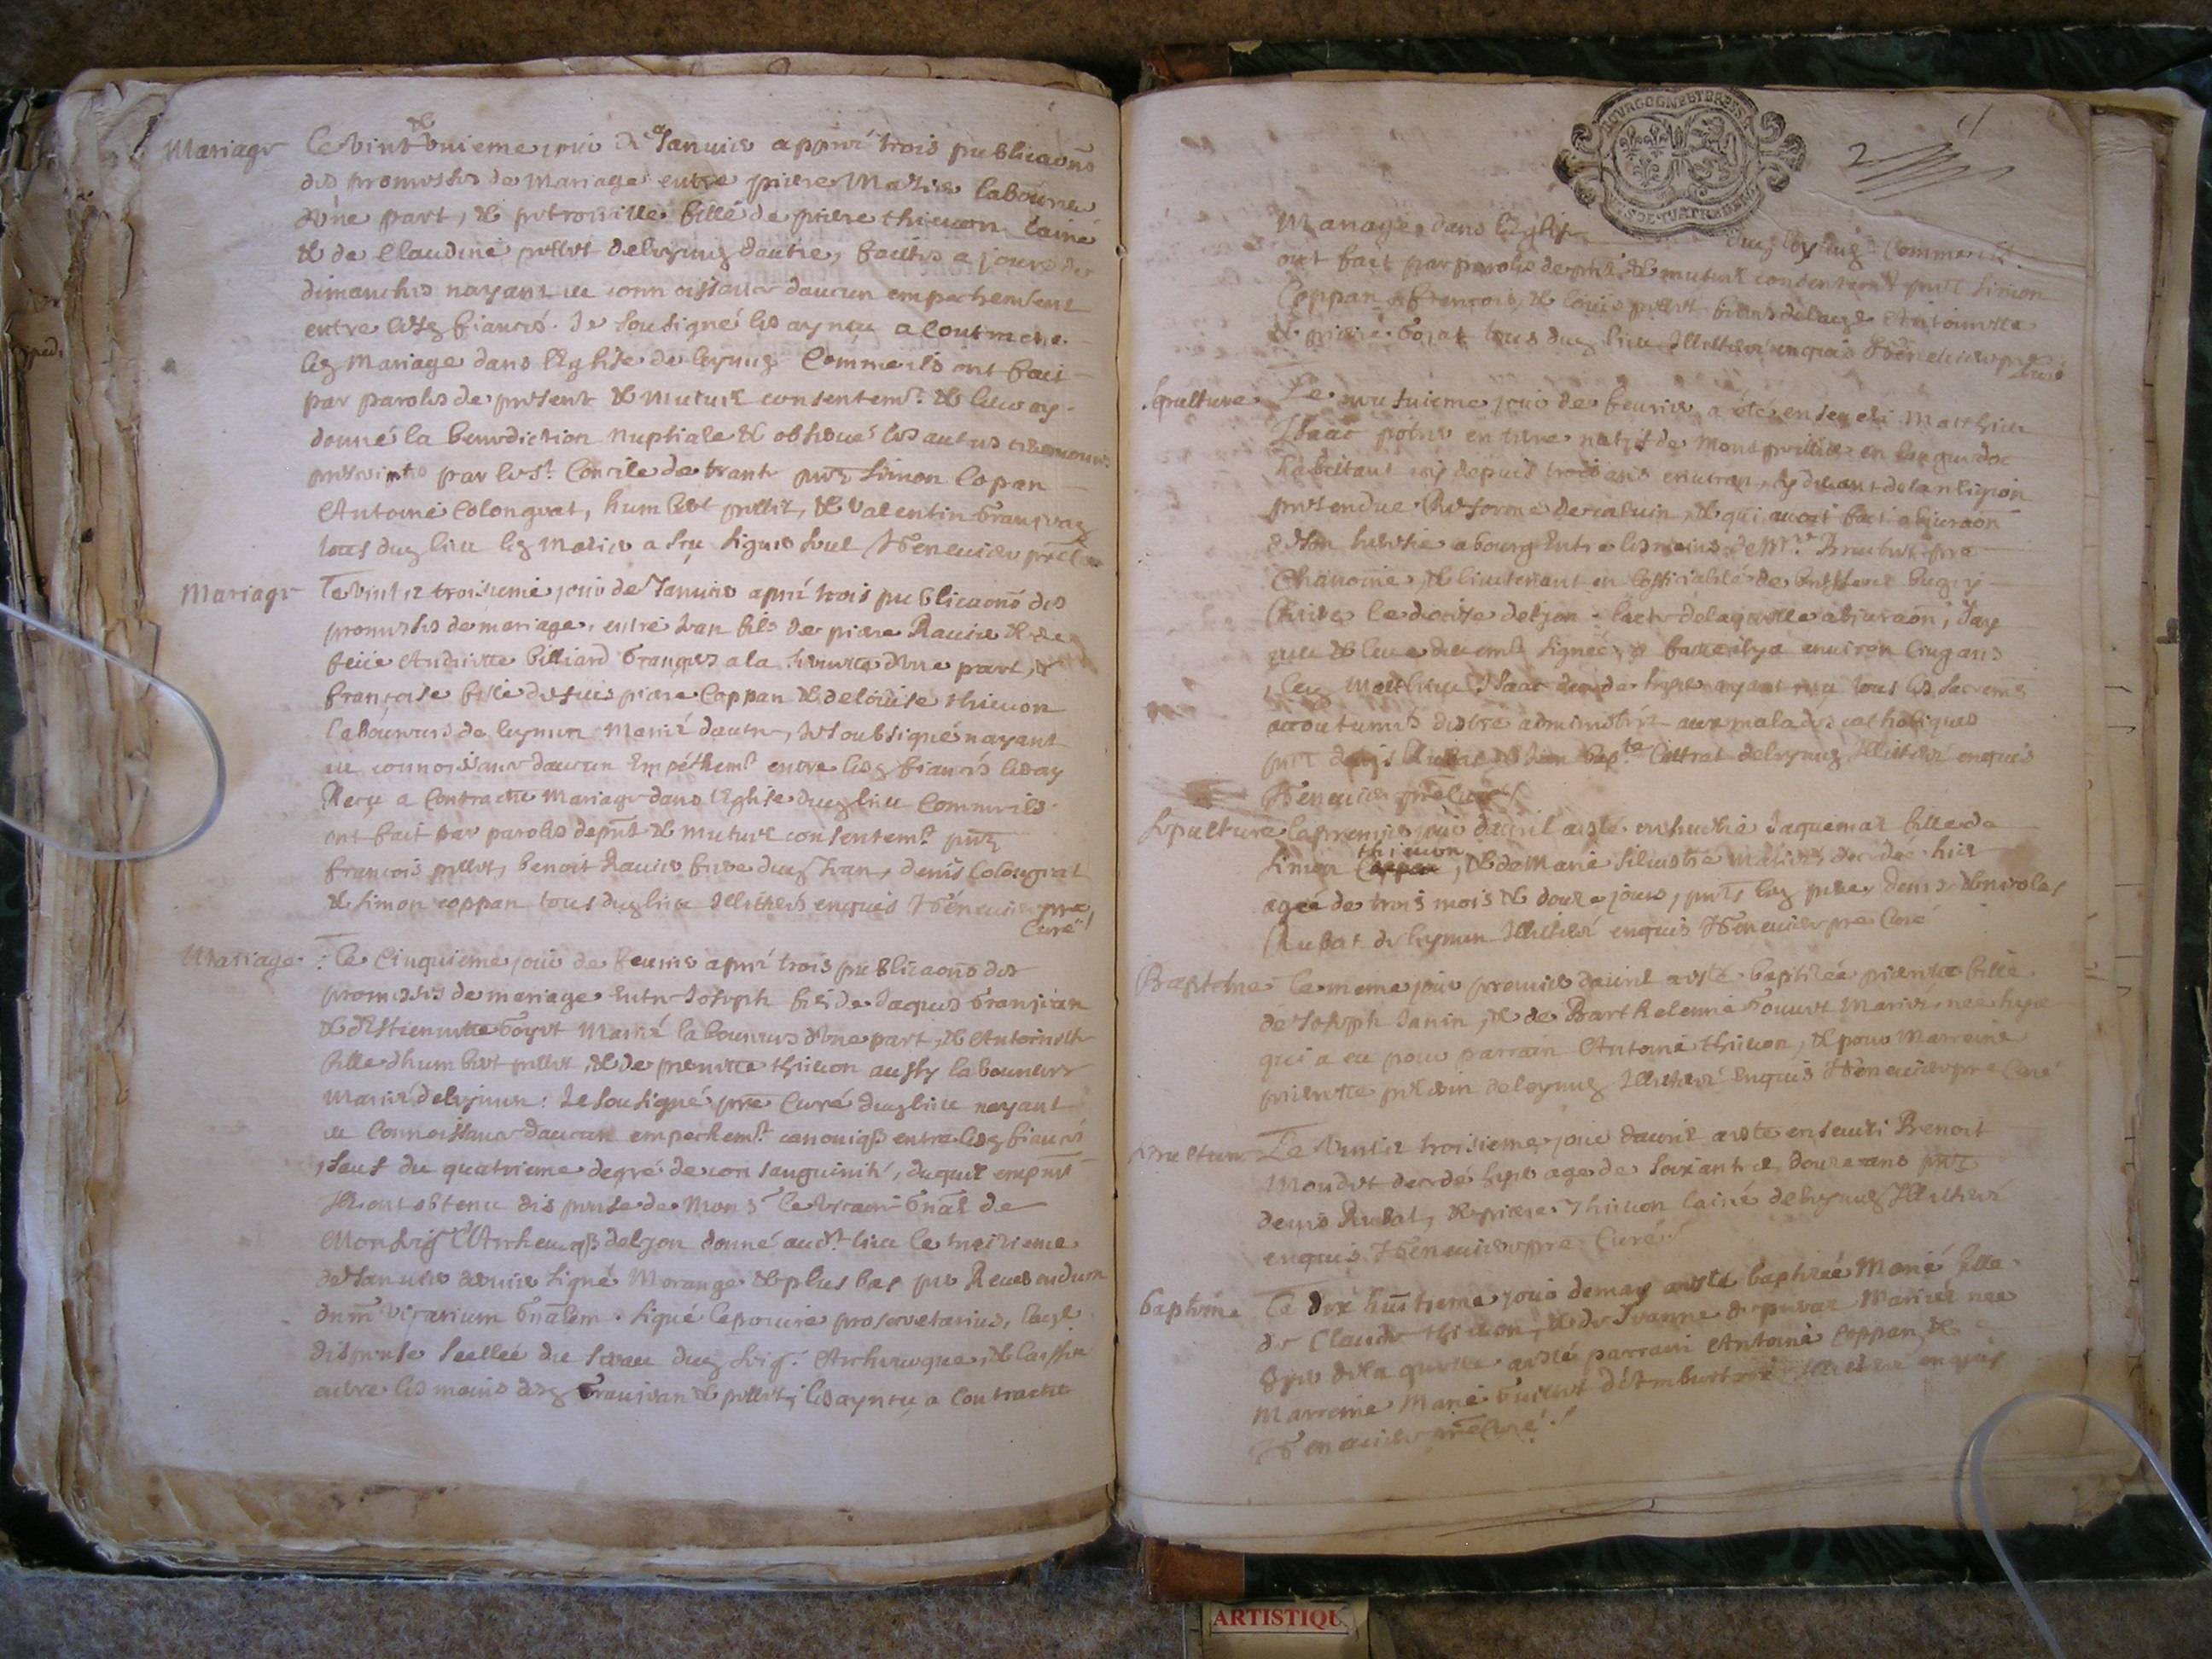 Mariage
Le vint & unieme jour de Januier appres trois publicaons
des promesses de Mariage entre pierre Matieu laboureur
d'une part, & petronille fille de pierre thieuon lainé
& de Claudine pellet deleyment dautre, faittes a jours de
dimanches nayant eu connoissance daucun empechement
entre lesdz fiancés. Je sousigné les ay reçu a contracter
led Mariage dans l'Eglise de leyment Comme ils ont fait
par paroles de present & Mutuel consentemt. & leur ay
donné la benediction Nuptiale & obserué les autres ceremonies
prescrites par le st. Concile de trante pnts Simon Copan
Antoine Colongeat, humbert pellet, & Valentin
tous dud lieu led Matieu a sçu signer seul
Mariage
Le vint & troisieme jour de Januier apres trois publicaons des
promesses de mariage, entre Jean fils de pierre Rauier & de
feue Andriette billiard grangers a la d'une part, &
françoise fille de feu pierre Coppan & de louise thieuon
laboureurs de leyment Mariés dautre, Je soubsigné nayant
eu connoissance daucun Empechemt entre lesdz fiancés les ay
Reçu a Contracter Mariage dans l'Eglise dud lieu Comme ils
ont fait par paroles de pnt & mutuel consentemt. pnts
françois pellet, benoit Rauier frere dud Jean, denis Colongeat
& Simon coppan tous dud lieu Illitterés enquis pre
Curé
Mariage
Le Cinquieme jour de feurier apres trois publicaons des
promesses de mariage Entre Joseph fils de Jaques Granjean
& d'Estiennette Goyet Mariés laboureurs d'une part, & Antoinette
fille d'humbert pellet & de pierrette thieuon aussy laboureurs
Mariés deleyment: Je sousigné pre Curé dud lieu nayant
eu Connoissance daucun empechemt. canoniq entre lesdz fiancés
sauf du quatrieme degré de consanguinité, duquel empemt
Ils ont obtenu dispense de Monsr le Vicaire Gnal de
Monseig l'Archeueq de lyon donné audt. lieu le treizieme
de Januier dernier signé Morange & plus bas per Reuerendum
dnum Vicarium Gnalem. signé prosecretarius, laqd
dispense scellée du sceau dud seig. Archeueque, & laissée
entre les mains desdz Granjean & pellet; les ay reçu a Contracter
BOURGOGNE ET BRESSE
2
Mariage dans l'Eglise dud leyment Comme ils
ont fait par paroles de pnt, & mutuel consentemt pnts Simon
Coppan françois, & louis pellet freres de lad Antoinette
& pierre Goyat tous dud lieu Illitterés enquis pre
Curé
Sepulture
Le neufuieme jour de feurier a été enseueli Matthieu
Isaac potier en terre natif de Montpellier en languedoc
habitant icy depuis trois ans enuiron, cy deuant de la religion
pretendue Reformé de caluin, & qui auoit fait abjuraon
de son heresie a bourg Entre les mains de Mr. pre
Chanoine, & lieutenant en l'officialité de bresse & bugey
Riere le diocese de lyon. lacte de laquelle abjuraon, Jay
veu & leu deuemt signée, & faitte il y a enuiron Cinq ans
led Matthieu Isaac hyer ayant reçu tous les sacrems
accoutumés d'estre administrés aux malades catholiques
pnts denis Rubat & Jean bapte. deleyment Illitterés enquis
pre Curé
Sepulture
Le premier jour dauril a esté enseuelie Jaquemaz fille de
Simon thieuon, & de Marie Siluestre Mariés decedée hier
agée de trois mois & douze jours, pnts led pere, denis & nicolas
Rubat de leyment Illitterés enquis pre Curé
Baptême
Le meme jour premier dauril a esté baptizée pierrette fille
de Joseph Janin, & de Barthelemie Mariés, née hyer
qui a eu pour parrain Antoine thieuon, & pour Marreine
pierrette deleyment Illitterés Enquis pre Curé
Sepulture
Le vint & troisieme jour dauril a esté enseueli Benoit
Moudet decedé hyer agé de soixante & douze ans pnts
denis Rubat, & pierre Thieuon lainé deleyment Illitterés
enquis pre Curé
Baptême
Le dix huitieme jour de may a esté baptizée Marie fille
de Claude thieuon, & de Jeanne Mariés née
hyer de laquelle a esté parrain Antoine Coppan &
Marreine Marie Guillet Illitterés enquis
pre Curé
ARTISTIQU